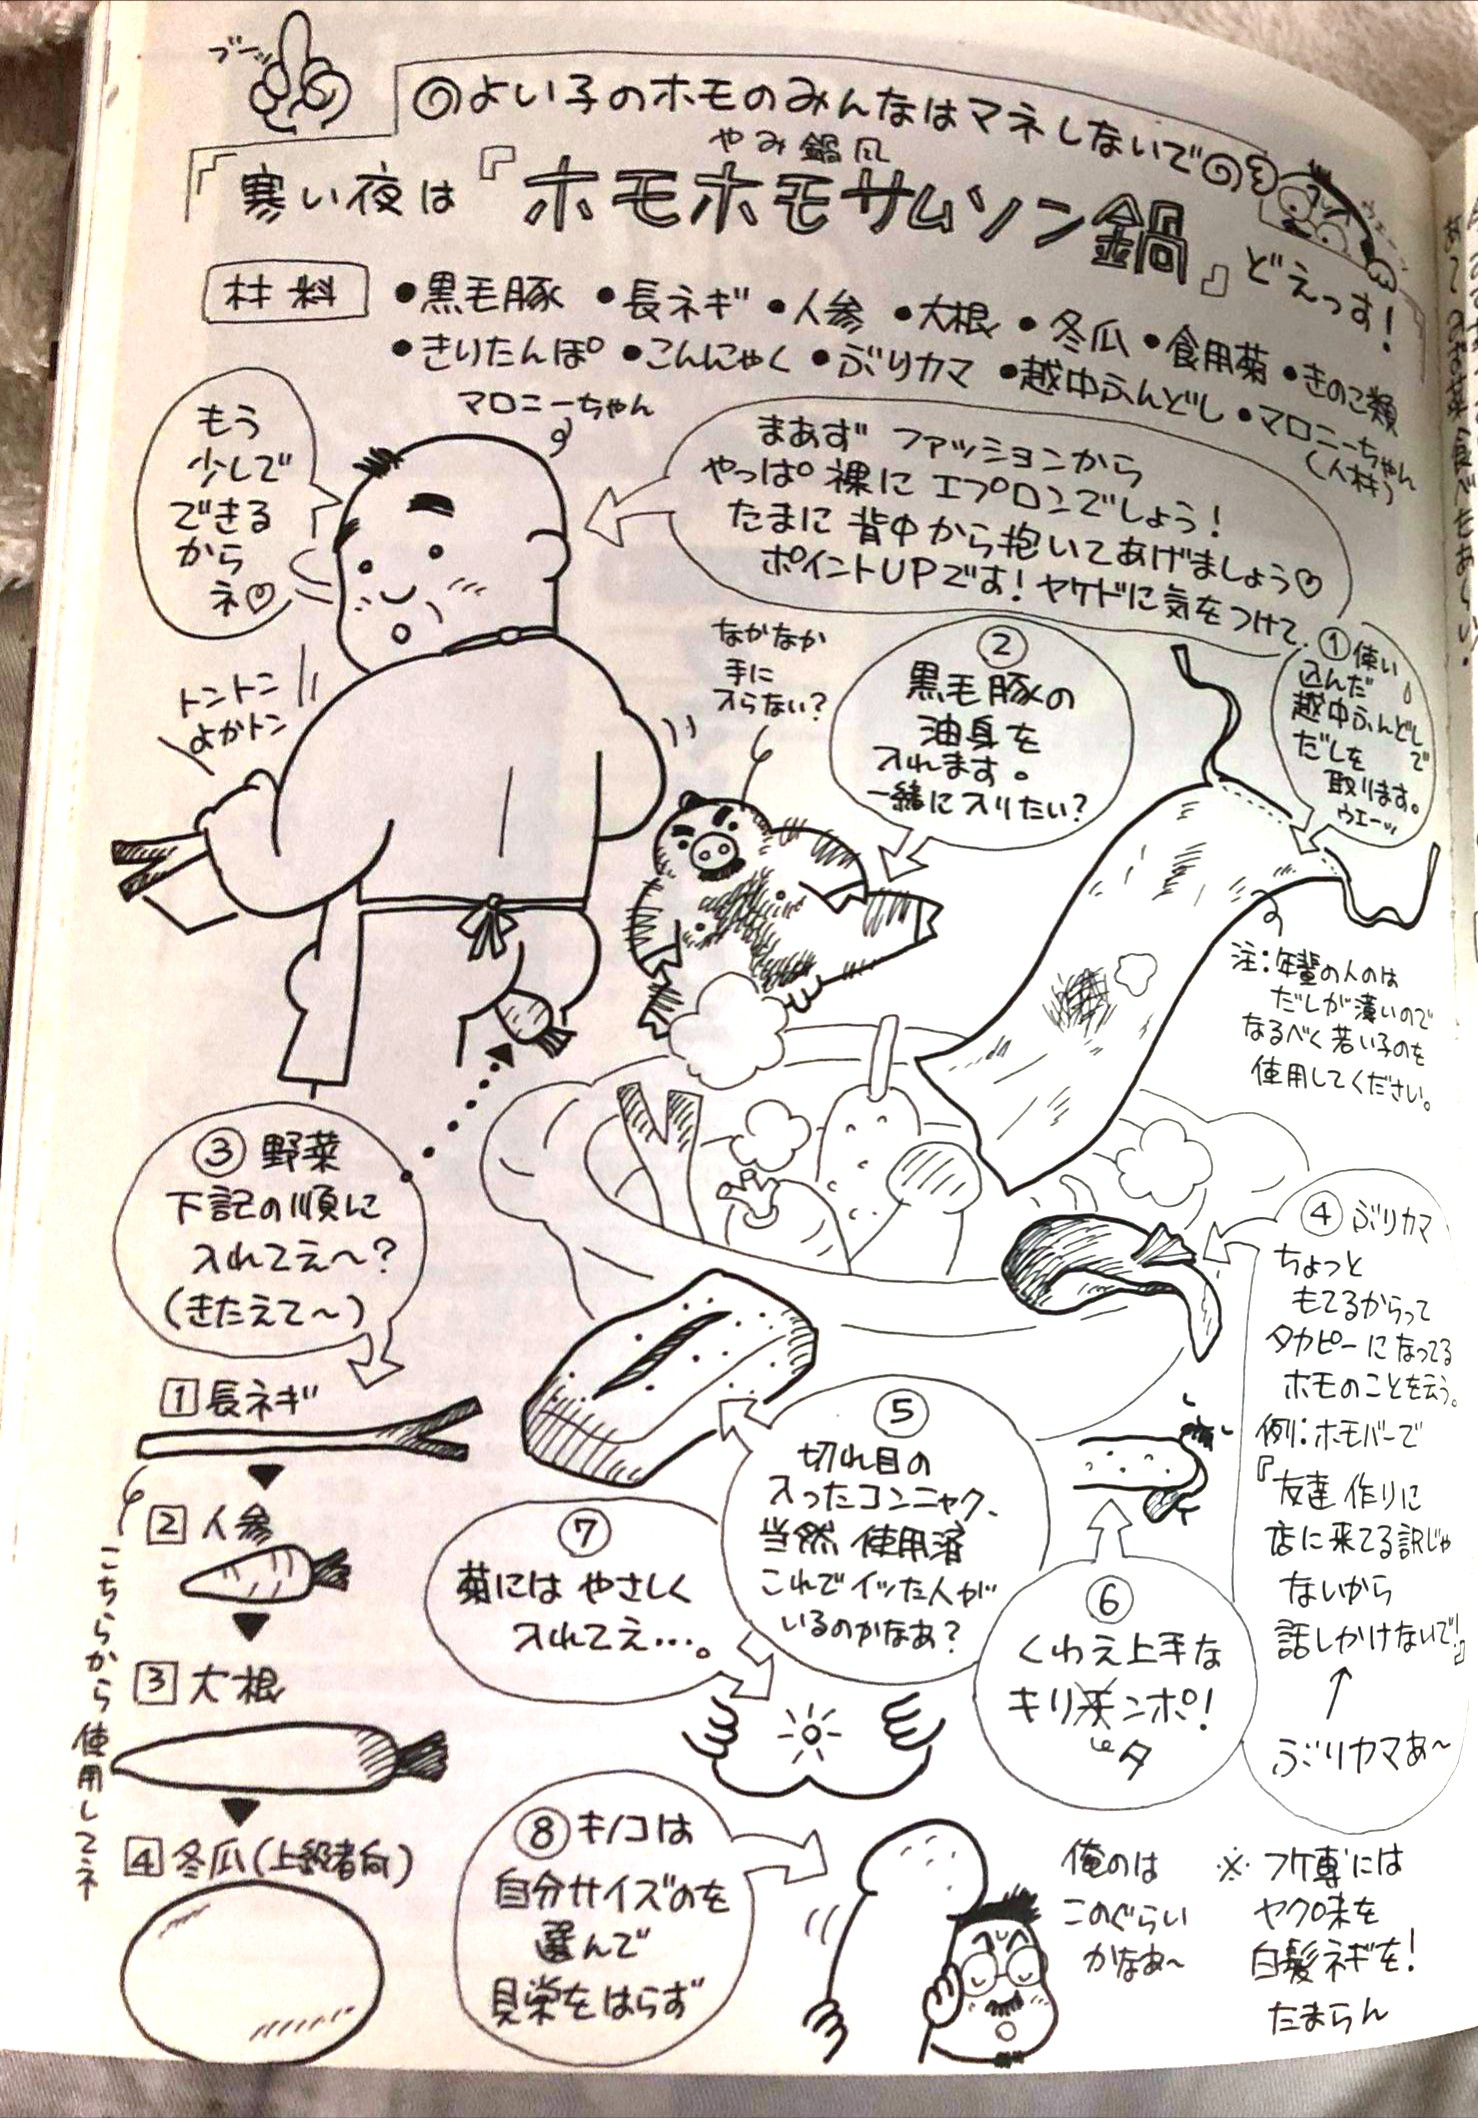 ブー
◎よい子のホモのみんなはマネしないで◎
ウェー
やみ鍋風
「寒い夜は『ホモホモサムソン鍋』どえっす!
材料
●黒毛豚 ●長ネギ ●人参 ●大根 ●冬瓜 ●食用菊 ●きのこ類
●きりたんぽ ●こんにゃく ●ぶりカマ ●越中ふんどし ●マロニーちゃん
(人材)
もう
少しで
できる
から
ネ♡
マロニーちゃん
まあず ファッションから
やっぱ 裸に エプロンでしょう!
たまに 背中から抱いてあげましょう♡
ポイントUPです! ヤケドに気をつけて
トントン
よかトン
なかなか
手に
入らない?
② 
黒毛豚の
油身を
入れます。
一緒に入りたい?
①使い
込んだ
越中ふんどしで
だしを
取ります。
ウエーッ
注:年輩の人のは
だしが濃いので
なるべく若い子のを
使用してください。
③野菜
下記の順に
入れてえ〜?
(きたえて〜)
1 長ネギ
2 人参
3 大根
4 冬瓜(上級者向)
こちらから使用してネ
④ぶりカマ
ちょっと
もてるからって
タカピーになってる
ホモのことを云う。
例:ホモバーで
『友達作りに
店に来てる訳じゃ
ないから
話しかけないで!』
ぶりカマあ〜
⑤
切れ目の
入ったコンニャク、
当然 使用済
これでイッた人が
いるのかなあ?
⑥
くわえ上手な
キリチンポ!
タ
⑦
菊には やさしく
入れてえ…。
⑧キノコは
自分サイズのを
選んで
見栄をはらず
俺のは
このぐらい
かなあ〜
※フケ専には
ヤク味を
白髪ネギを!
たまらん